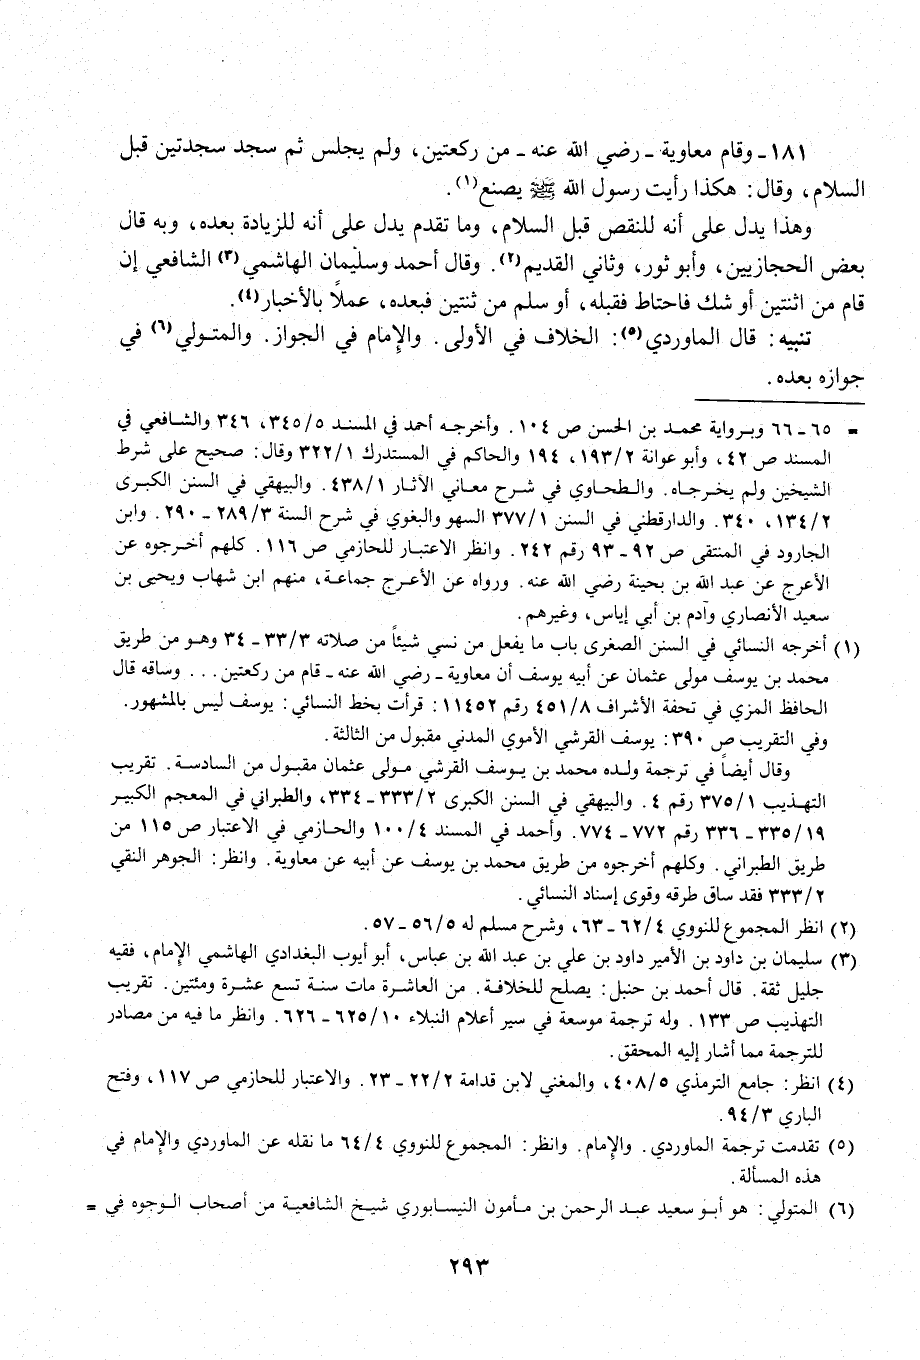 ١٨١ـ وقام معاوية ـ رضي الله عنه ـ من ركعتين، ولم يجلس ثم سجد سجدتين قبل
السلام، وقال: هكذا رأيت رسول الله ﷺ يصنع(١).
وهذا يدل على أنه للنقص قبل السلام، وما تقدم يدل على أنه للزيادة بعده، وبه قال
بعض الحجازيين، وأبو ثور، وثاني القديم(٢). وقال أحمد وسليمان الهاشمي(٣) الشافعي إن
قام من اثنتين أو شك فاحتاط فقبله، أو سلم من ثنتين فبعده، عملاً بالأخبار(٤).
تنبيه: قال الماوردي(٥): الخلاف في الأولى. والإمام في الجواز. والمتولي(٦) في
جوازه بعده.
= ٦٥ـ٦٦ وبرواية محمد بن الحسن ص ١٠٤. وأخرجه أحمد في المسند ٣٤٥/٥، ٣٤٦ والشافعي في
المسند ص ٤٢، وأبو عوانة ١٩٣/٢، ١٩٤ والحاكم في المستدرك ٣٢٢/١ وقال: صحيح على شرط
الشيخين ولم يخرجاه. والطحاوي في شرح معاني الآثار ٤٣٨/١. والبيهقي في السنن الكبرى
١٣٤/٢، ٣٤٠. والدارقطني في السنن ٣٧٧/١ السهو والبغوي في شرح السنة ٢٨٩/٣ ـ ٢٩٠. وابن
الجارود في المنتقى ص ٩٢ـ ٩٣ رقم ٢٤٢. وانظر الاعتبار للحازمي ص ١١٦. كلهم أخرجوه عن
الأعرج عن عبد الله بن بحينة رضي الله عنه. ورواه عن الأعرج جماعة، منهم ابن شهاب ويحيى بن
سعيد الأنصاري وآدم بن أبي إياس، وغيرهم.
(١) أخرجه النسائي في السنن الصغرى باب ما يفعل من نسي شيئاً من صلاته ٣٣/٣ـ ٣٤ وهو من طريق
محمد بن يوسف مولى عثمان عن أبيه يوسف أن معاوية ـ رضي الله عنه ـ قام من ركعتين... وساقه قال
الحافظ المزي في تحفة الأشراف ٤٥١/٨ رقم ١١٤٥٢: قرأت بخط النسائي: يوسف ليس بالمشهور.
وفي التقريب ص ٣٩٠: يوسف القرشي الأموي المدني مقبول من الثالثة.
وقال أيضاً في ترجمة ولده محمد بن يوسف القرشي مولى عثمان مقبول من السادسة. تقريب
التهذيب ٣٧٥/١ رقم ٤. والبيهقي في السنن الكبرى ٣٣٣/٢ـ٣٣٤، والطبراني في المعجم الكبير
٣٣٥/١٩ـ ٣٣٦ رقم ٧٧٢ـ ٧٧٤. وأحمد في المسند ١٠٠/٤ والحازمي في الاعتبار ص ١١٥ من
طريق الطبراني. وكلهم أخرجوه من طريق محمد بن يوسف عن أبيه عن معاوية. وانظر: الجوهر النقي
٣٣٣/٢ فقد ساق طرقه وقوى إسناد النسائي.
(٢) انظر المجموع للنووي ٦٢/٤ـ٦٣، وشرح مسلم له ٥٦/٥ـ ٥٧.
(٣) سليمان بن داود بن الأمير داود بن علي بن عبد الله بن عباس، أبو أيوب البغدادي الهاشمي الإمام، فقيه
جليل ثقة. قال أحمد بن حنبل: يصلح للخلافة. من العاشرة مات سنة تسع عشرة ومئتين. تقريب
التهذيب ص ١٣٣. وله ترجمة موسعة في سير أعلام النبلاء ٦٢٥/١٠ـ٦٢٦. وانظر ما فيه من مصادر
للترجمة مما أشار إليه المحقق.
(٤) انظر: جامع الترمذي ٤٠٨/٥، والمغني لابن قدامة ٢٢/٢ـ ٢٣. والاعتبار للحازمي ص ١١٧، وفتح
الباري ٩٤/٣.
(٥) تقدمت ترجمة الماوردي. والإمام. وانظر: المجموع للنووي ٦٤/٤ ما نقله عن الماوردي والإمام في
هذه المسألة.
(٦) المتولي: هو أبو سعيد عبد الرحمن بن مأمون النيسابوري شيخ الشافعية من أصحاب الوجوه في =
٢٩٣